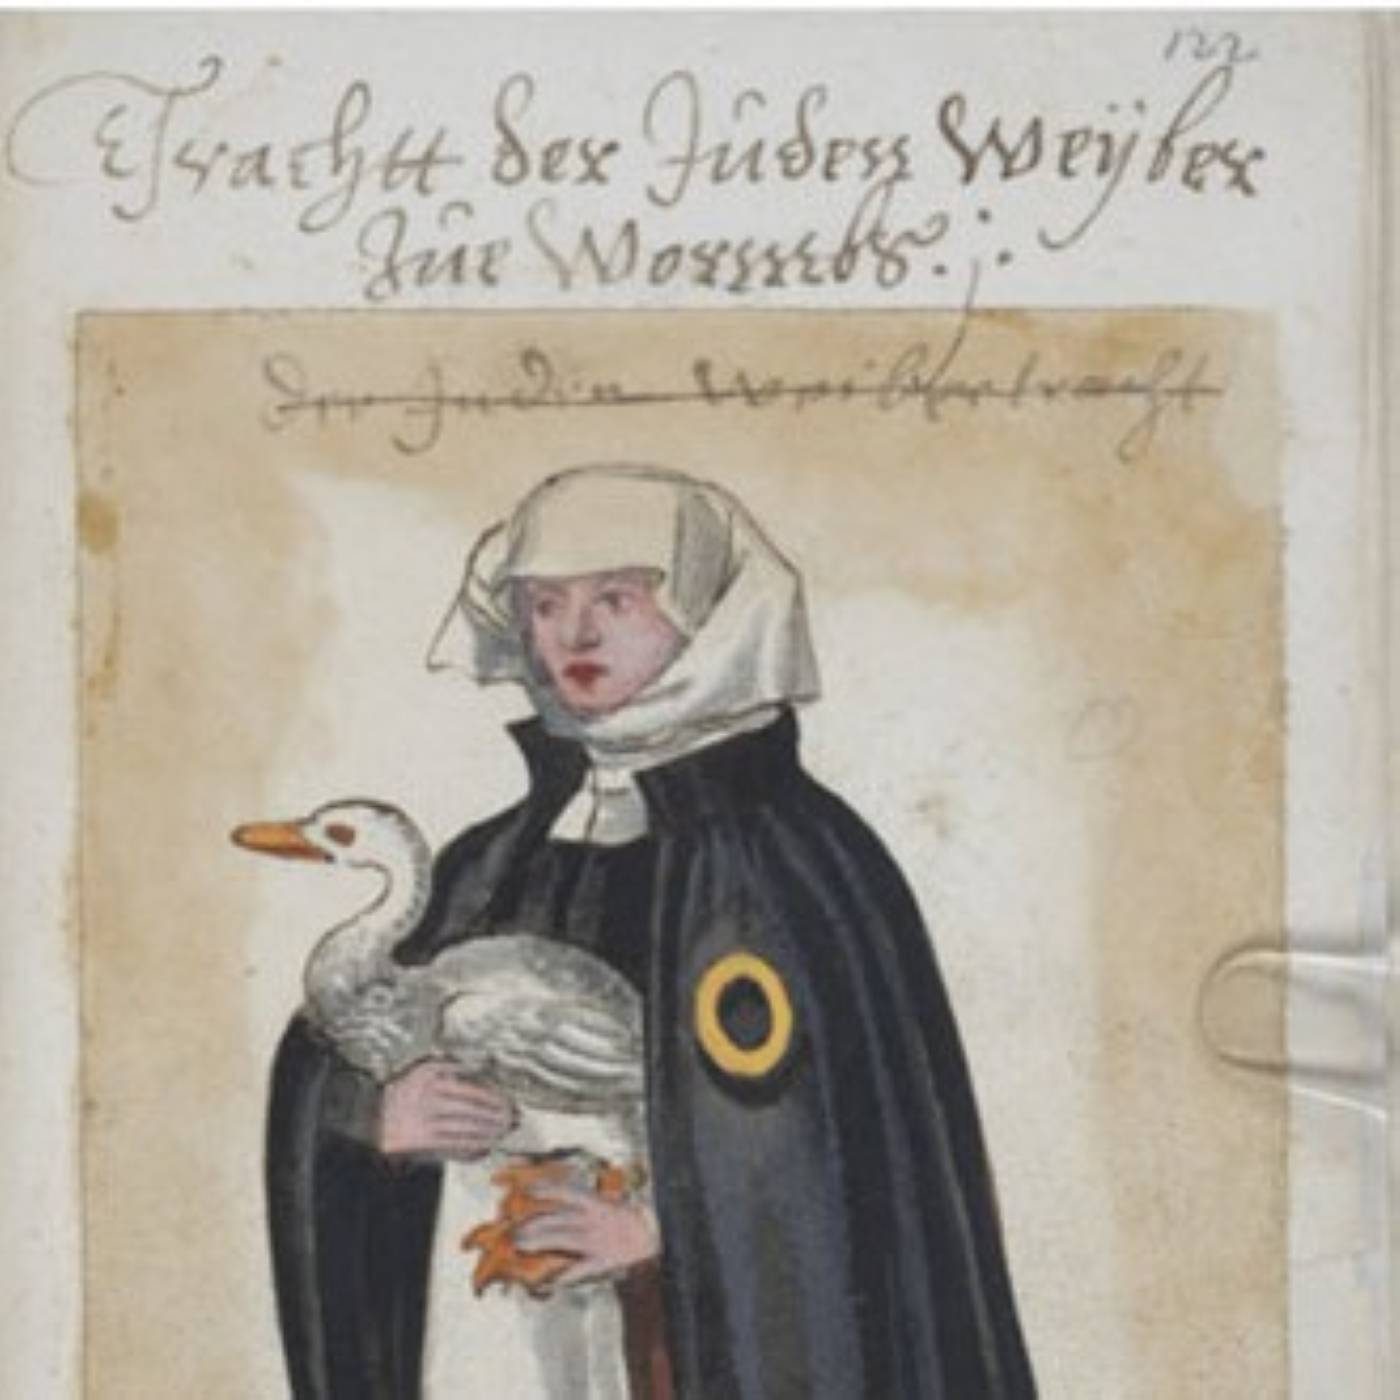 122
Trachtt der Jůden Weÿber
zůe Wormbs.
Der Judin Weibertracht